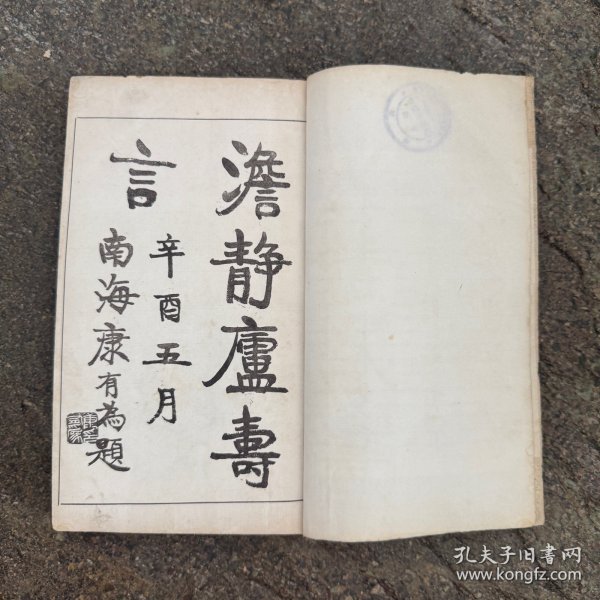 澹靜廬壽
言
辛酉五月
南海康有為題
孔夫子旧书网
www.kongfz.com